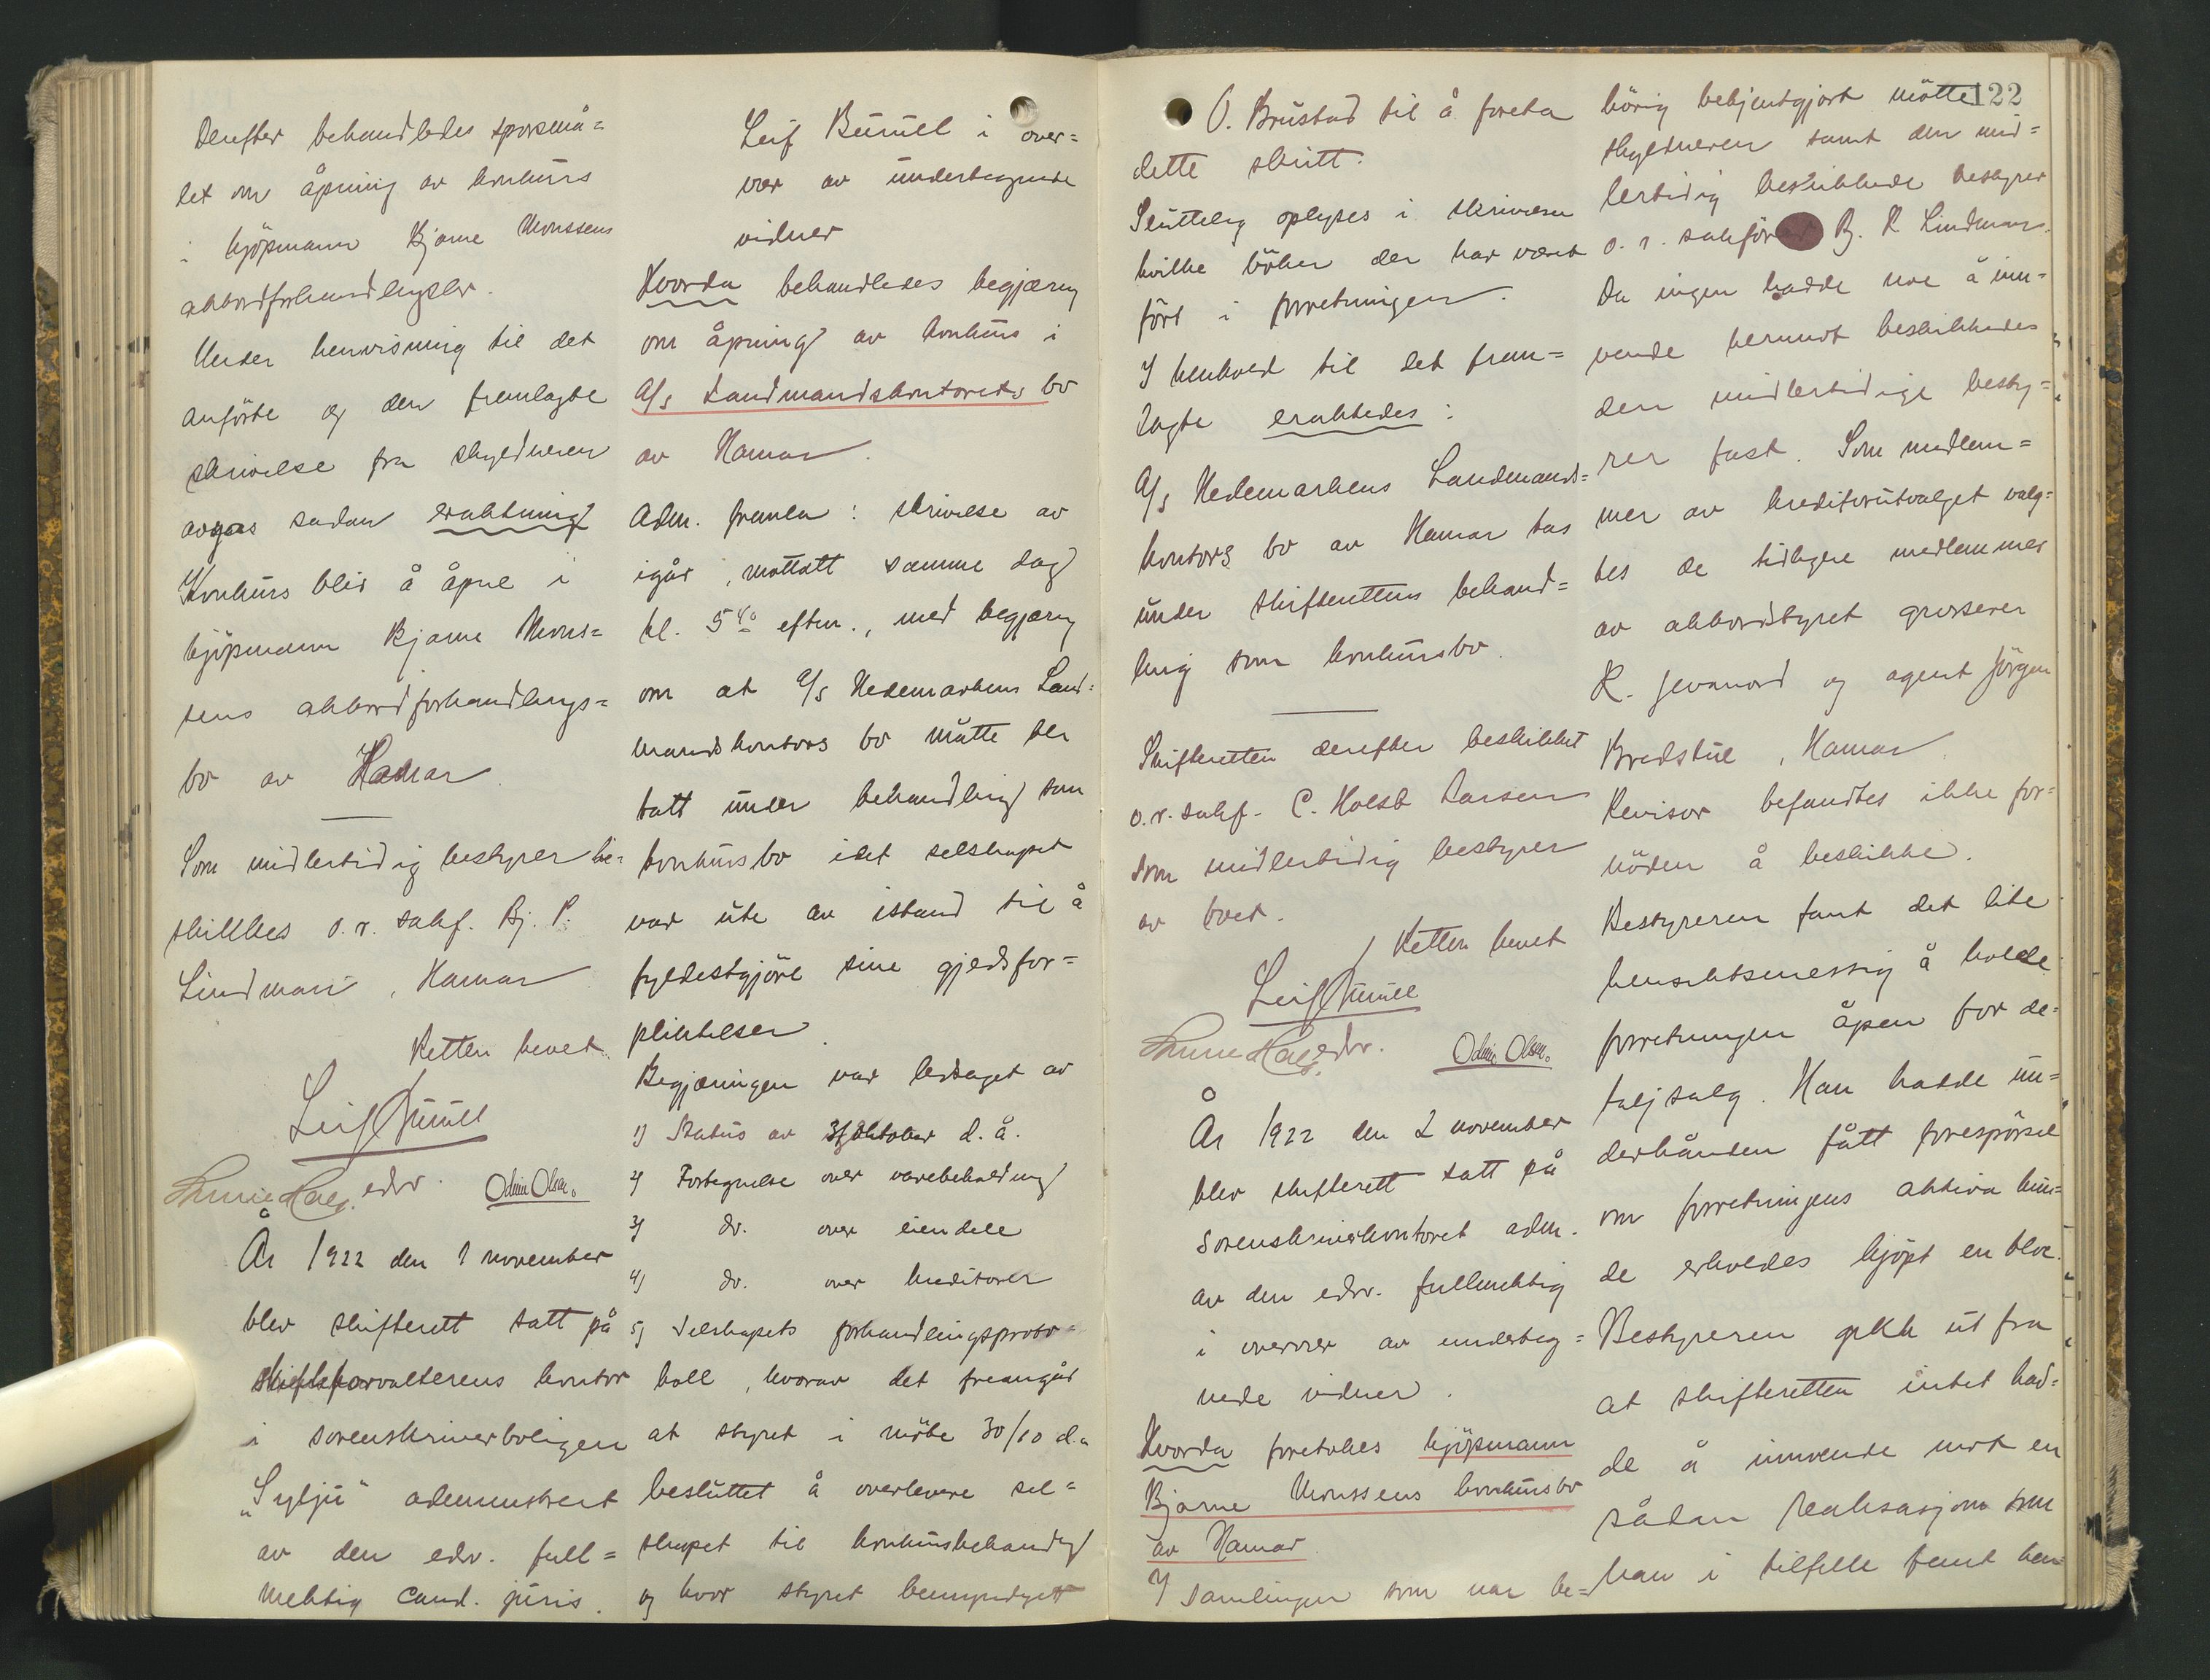 Derefter behandledes sporsmå=
let om åpning av konkurs
i kjöpmann Bjarne Monssens
akkordforhandlingsbo.
Under henvisning til det
anförte og den fremlagte
skrivelse fra skyldneren
avgas sådan eraktning
Konkurs blir å åpne i
kjöpmann Bjarne Mons=
sens akkordforhandlings=
bo av Hamar.
Som midlertidig bestyrer be=
skikkes o.r. sakf. Bj. R.
Lindman, Hamar
Retten hevet
Leif Buruell
edsv. Odin Olsen.
År 1922 den 1 november
blev skifterett satt på
skifteforvalterens kontor
i sorenskriverboligen
"Sylju" administrert
av den edsv. full=
mektig cand. juris.
Leif Buruell i over=
vær av undertegnede
vidner
Hvorda behandledes begjæring
om åpning av konkurs i
A/s Landmandskontorets bo
av Hamar.
Adm. fremla: skrivelse av
igår, mottatt samme dag
kl. 5⁴⁰ eftm., med begjæring
om at A/s Hedemarkens Land=
mandskontors bo måtte bli
tatt under behandling som
konkursbo idet selskapet
var ute av istand til å
fyldestgjöre sine gjeldsfor=
pliktelser.
Begjæringen var ledsaget av
1) Status av 31 oktober d.å.
2) Fortegnelse over varebeholdning
3) do. over eiendele
4) do. over kreditorer
5) Selskapets forhandlingsproto=
koll, hvorav det fremgår
at styret i möte 30/10 d.å
besluttet å overlevere sel=
skapet til konkursbehandlg
og hvor styret bemyndiget
O. Brustad til å foreta
dette skritt.
Sluttelig oplyses i skrivelsen
hvilke böker der har været
fört i forretningen.
I henhold til det frem=
lagte eraktedes:
A/s Hedemarkens Landmands=
kontors bo av Hamar tas
under skifterettens behand=
ling som konkursbo.
Skifteretten derefter beskikket
o.r. sakf. C. Holst Larsen
som midlertidig bestyrer
av boet.
Retten hevet
Leif Buruell
edsv. Odin Olsen.
År 1922 den 2 november
blev skifterett satt på
sorenskriverkontoret adm.
av den edsv. fullmektig
i overvær av underteg=
nede vidner.
Hvorda foretokes kjöpmann
Bjarne Monssens konkursbo
av Hamar
I samlingen som var be=
122
hörig bekjentgjort mötte
skyldneren samt den mid=
lertidig beskikkede bestyrer
o.r. sakförer Bj. R. Lindman.
Da ingen hadde noe å inn=
vende herimot beskikkedes
den midlertidige besty=
rer fast. Som medlem=
mer av kreditorutvalget valg=
tes de tidligere medlemmer
av akkordstyret grosserer
R. Jevanord og agent Jörgen
Bredstue, Hamar.
Revisor befandtes ikke for=
nöden å beskikke.
Bestyreren fant det lite
hensiktsmessig å holde
forretningen åpen for de=
taljsalg. Han hadde un=
derhånden fått forespörsel
om forretningens aktiva kun=
de erholdes kjöpt en bloc.
Bestyreren gikk ut fra
at skifteretten intet had=
de å innvende mot en
sådan realisasjon som
han i tilfelle fant hen=